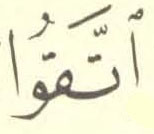 ٱتَّقَوُا